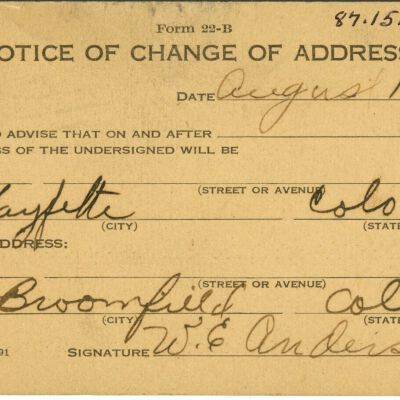 Form 22-B 87.15
OTICE OF CHANGE OF ADDRESS
DATE August 1
O ADVISE THAT ON AND AFTER
SS OF THE UNDERSIGNED WILL BE
(STREET OR AVENUE)
ayfette Colo
(CITY) (STATE
DDRESS:
(STREET OR AVENUE)
Broomfield Col
(CITY) (STATE
91 SIGNATURE W. E Anders